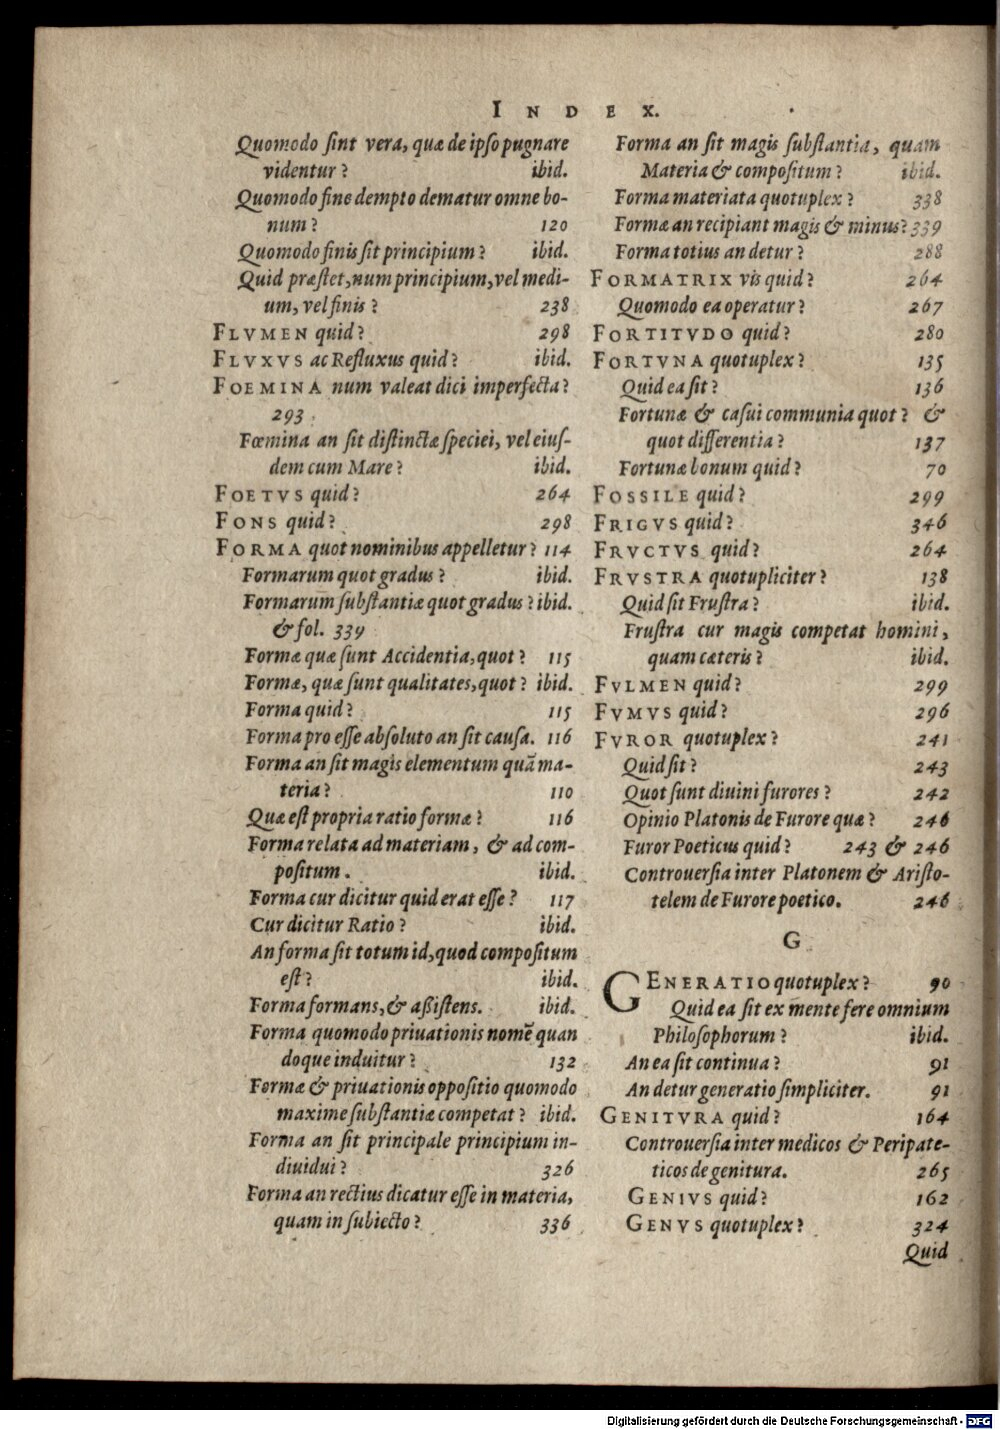 INDEX.
Quomodo sint vera, quæ de ipso pugnare
videntur? ibid.
Quomodo fine dempto dematur omne bo-
num? 120
Quomodo finis sit principium? ibid.
Quid præstet, num principium, vel medi-
um, vel finis? 238
FLVMEN quid? 298
FLVXVS ac Refluxus quid? ibid.
FOEMINA num valeat dici imperfecta?
293
Fœmina an sit distinctæ speciei, vel eius-
dem cum Mare? ibid.
FOETVS quid? 264
FONS quid? 298
FORMA quot nominibus appelletur? 114
Formarum quot gradus? ibid.
Formarum substantiæ quot gradus? ibid.
& fol. 339
Formæ quæ sunt Accidentia, quot? 115
Formæ, quæ sunt qualitates, quot? ibid.
Forma quid? 115
Forma pro esse absoluto an sit causa. 116
Forma an sit magis elementum quã ma-
teria? 110
Quæ est propria ratio formæ? 116
Forma relata ad materiam, & ad com-
positum. ibid.
Forma cur dicitur quid erat esse? 117
Cur dicitur Ratio? ibid.
An forma sit totum id, quod compositum
est? ibid.
Forma formans, & aßistens. ibid.
Forma quomodo priuationis nomẽ quan
doque induitur? 132
Formæ & priuationis oppositio quomodo
maxime substantiæ competat? ibid.
Forma an sit principale principium in-
diuidui? 326
Forma an rectius dicatur esse in materia,
quam in subiecto? 336
Forma an sit magis substantia, quam
Materia & compositum? ibid.
Forma materiata quotuplex? 338
Formæ an recipiant magis & minus? 339
Forma totius an detur? 288
FORMATRIX vis quid? 264
Quomodo ea operatur? 267
FORTITVDO quid? 280
FORTVNA quotuplex? 135
Quid ea sit? 136
Fortunæ & casui communia quot? &
quot differentia? 137
Fortunæ bonum quid? 70
FOSSILE quid? 299
FRIGVS quid? 346
FRVCTVS quid? 264
FRVSTRA quotupliciter? 138
Quid sit Frustra? ibid.
Frustra cur magis competat homini,
quam cæteris? ibid.
FVLMEN quid? 299
FVMVS quid? 296
FVROR quotuplex? 241
Quid sit? 243
Quot sunt diuini furores? 242
Opinio Platonis de Furore quæ? 246
Furor Poeticus quid? 243 & 246
Controuersia inter Platonem & Aristo-
telem de Furore poetico. 246
G
GENERATIO quotuplex? 90
Quid ea sit ex mente fere omnium
Philosophorum? ibid.
An ea sit continua? 91
An detur generatio simpliciter. 91
GENITVRA quid? 164
Controuersia inter medicos & Peripate-
ticos de genitura. 265
GENIVS quid? 162
GENVS quotuplex? 324
Quid
Digitalisierung gefördert durch die Deutsche Forschungsgemeinschaft - DFG